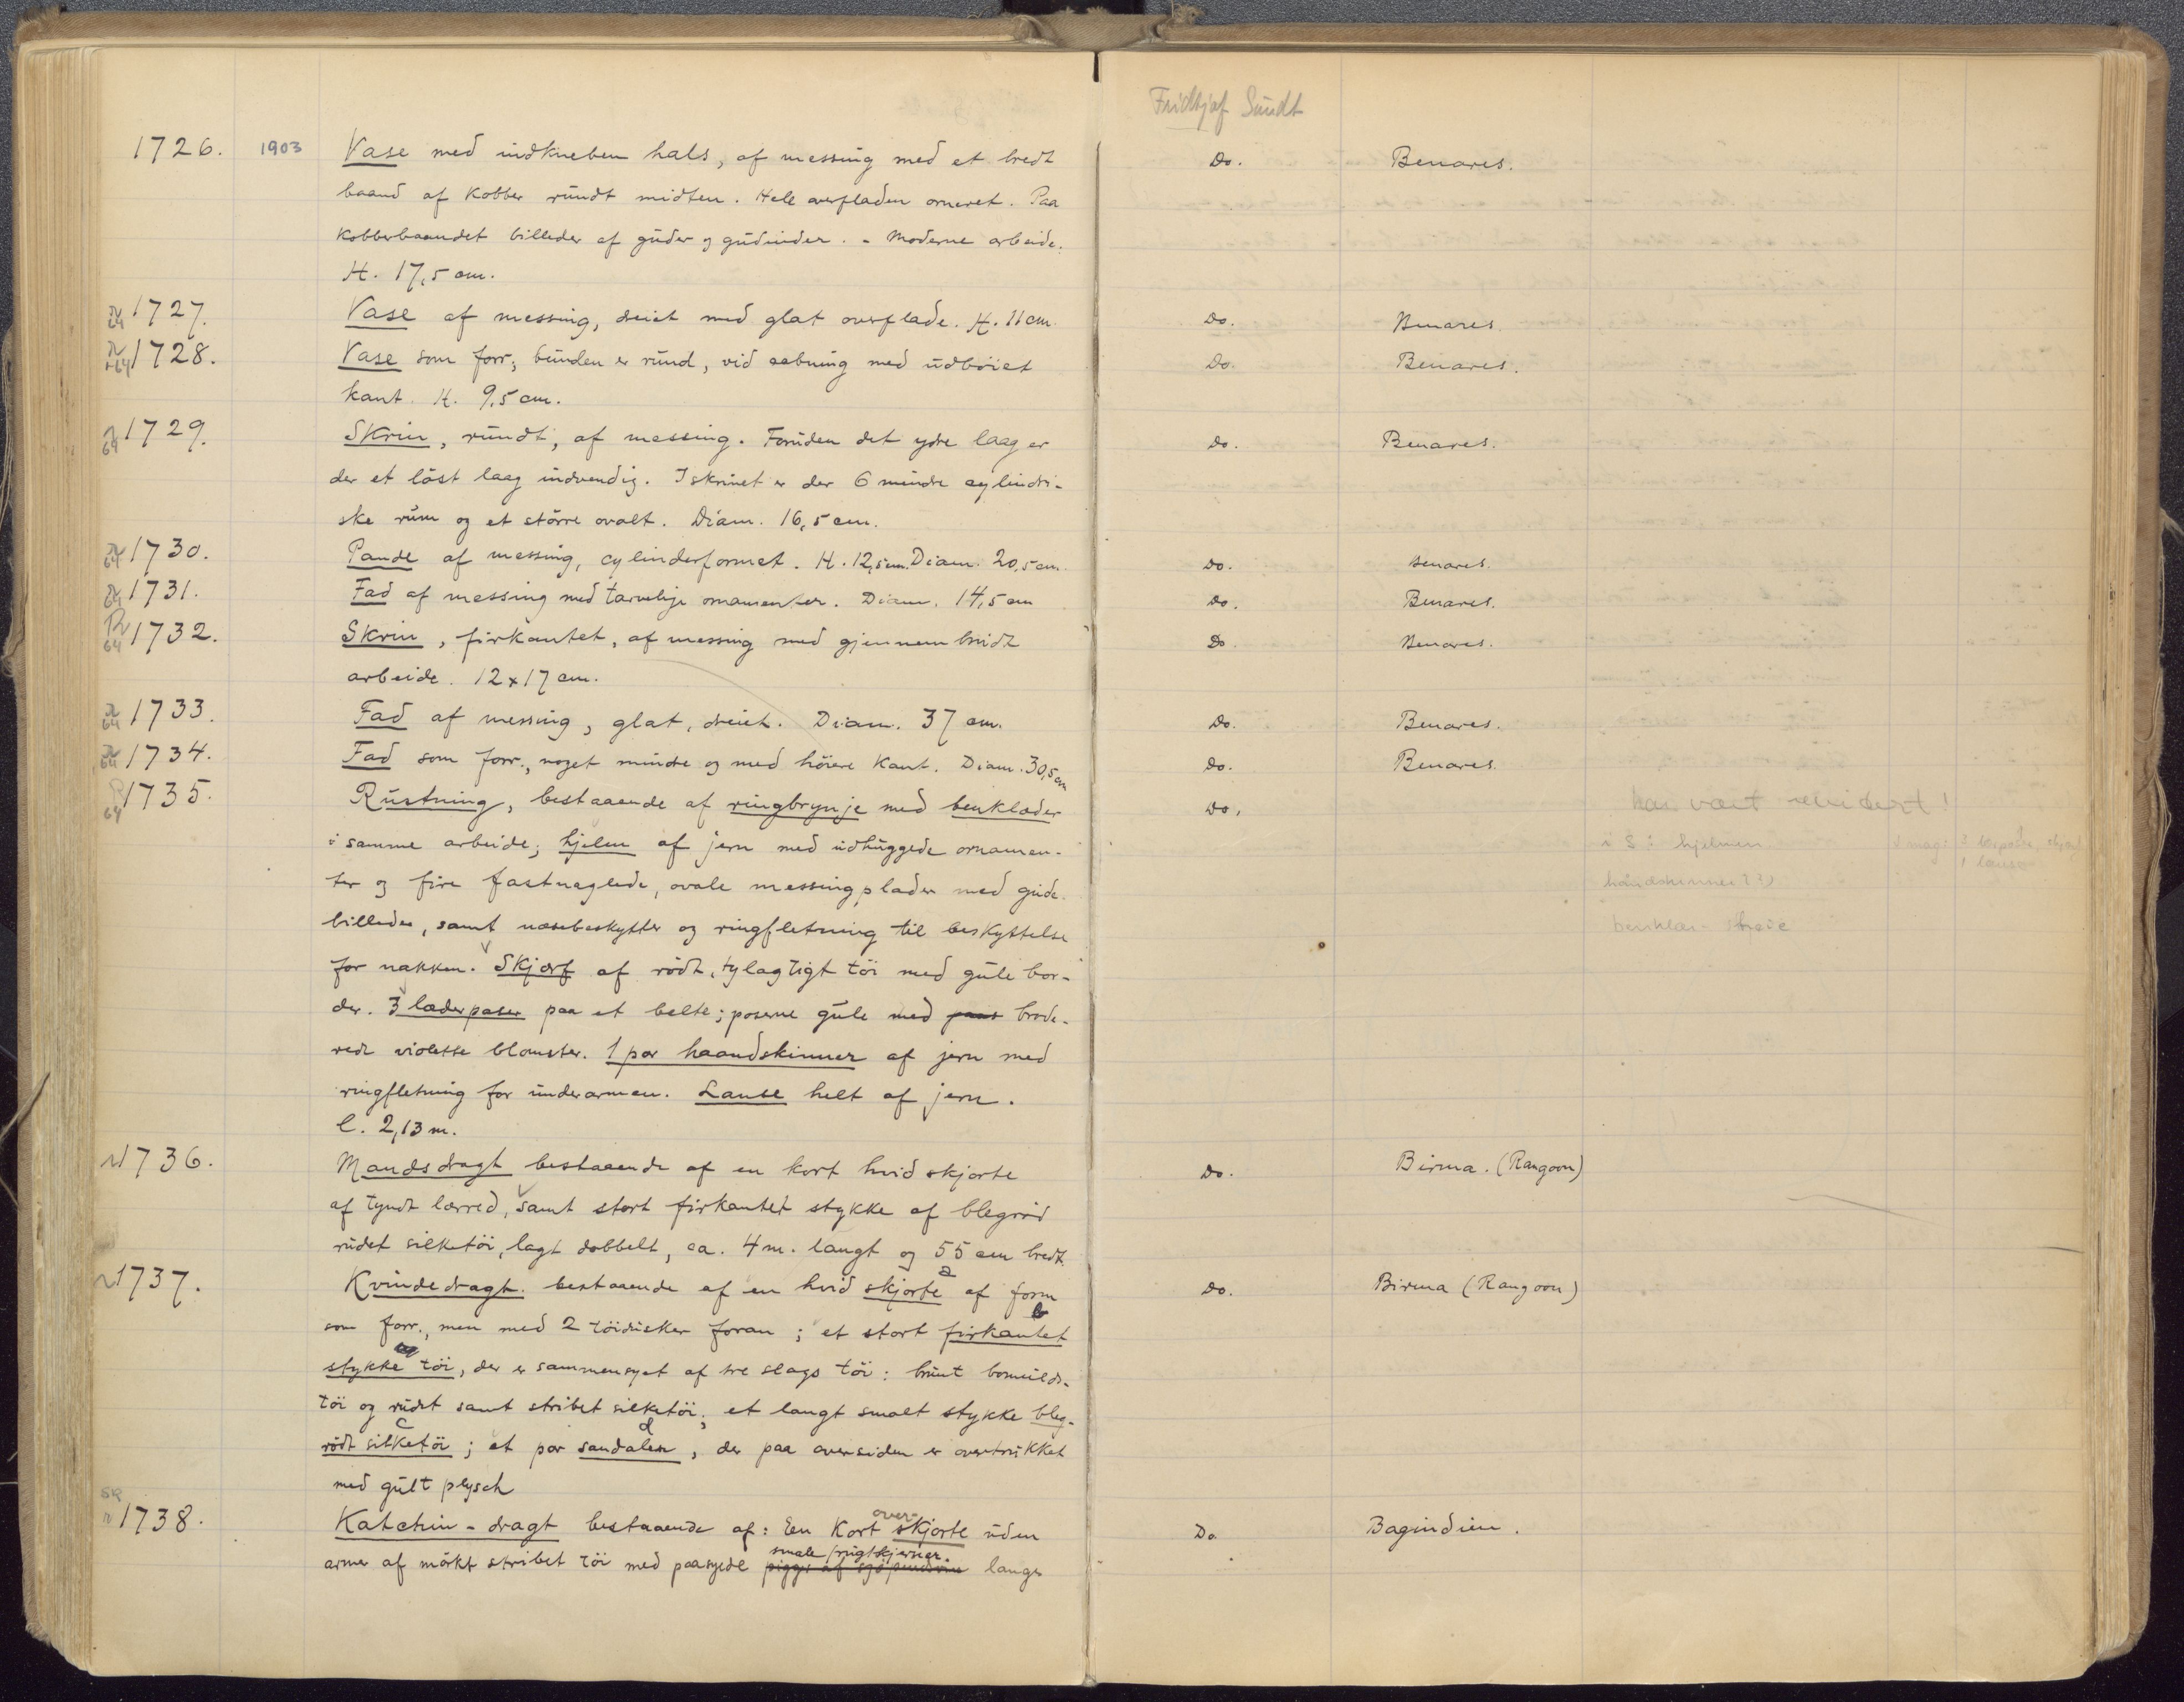 Fridtjof Sundt
1726. 1903 Vase med indkneben hals, af messing med et bredt Do. Benares.
baand af kobber rundt midten. Hele overfladen orneret. Paa
kobberbaandet billeder af guder og gudinder. - Moderne arbeide.
H. 17,5 cm.
1727. Vase af messing, dreiet med glat overflade. H. 11 cm. Do. Benares.
1728. Vase som forr; bunden er rund, vid aabning med udböiet Do. Benares.
kant. H. 9,5 cm.
1729. Skrin, rundt, af messing. Foruden det ydre laag er Do. Benares.
der et löst laag indvendig. I skrinet er der 6 mindre cylindri-
ske rum og et större ovalt. Diam. 16,5 cm.
1730. Pande af messing, cylinderformet. H. 12,5 cm. Diam. 20,5 cm. Do. Benares.
1731. Fad af messing med tarvelige ornamenter. Diam. 14,5 cm Do. Benares.
1732. Skrin, firkantet, af messing med gjennembrudt Do Benares.
arbeide. 12 x 17 cm.
1733. Fad af messing, glat, dreiet. Diam. 37 cm. Do. Benares.
1734. Fad som forr., noget mindre og med höiere kant. Diam. 30,5 cm Do. Benares.
1735. Rustning, bestaaende af ringbrynje med benklæder Do. har vært revidert!
i samme arbeide; hjelm af jern med udhuggede ornamen- i S: hjelmen
ter og fire fastnaglede, ovale messingplader med gude-
billeder, samt næsebeskytter og ringfletning til beskyttelse
for nakken. Skjærf af rödt, tylagtigt töi med gule bor-
der. 3 læderposer paa et belte; poserne gule med brode-
rede violette blomster. 1 par haandskinner af jern med
ringfletning for underarmen. Lanse helt af jern.
l. 2,13 m.
1736. Mandsdragt bestaaende af en kort hvid skjorte Do. Birma. (Rangoon)
af tyndt lærred, samt stort firkantet stykke af blegröd
rudet silketöi, lagt dobbelt, ca. 4 m. langt og 55 cm bredt.
1737. Kvindedragt bestaaende af en hvid skjorte a af form Do. Birma (Rangoon)
som forr., men med 2 töidusker foran; et stort firkantet b
stykke töi, der er sammensyet af tre slags töi: brunt bomulds-
töi og rudet samt stribet silketöi; et langt smalt stykke bleg-
rödt silketöi c; et par sandaler d, der paa oversiden er overtrukket
med gult plysch
1738. Katchin-dragt bestaaende af: En kort over-skjorte uden Do Bagindien.
armer af mörkt stribet töi med paasyede smale langs